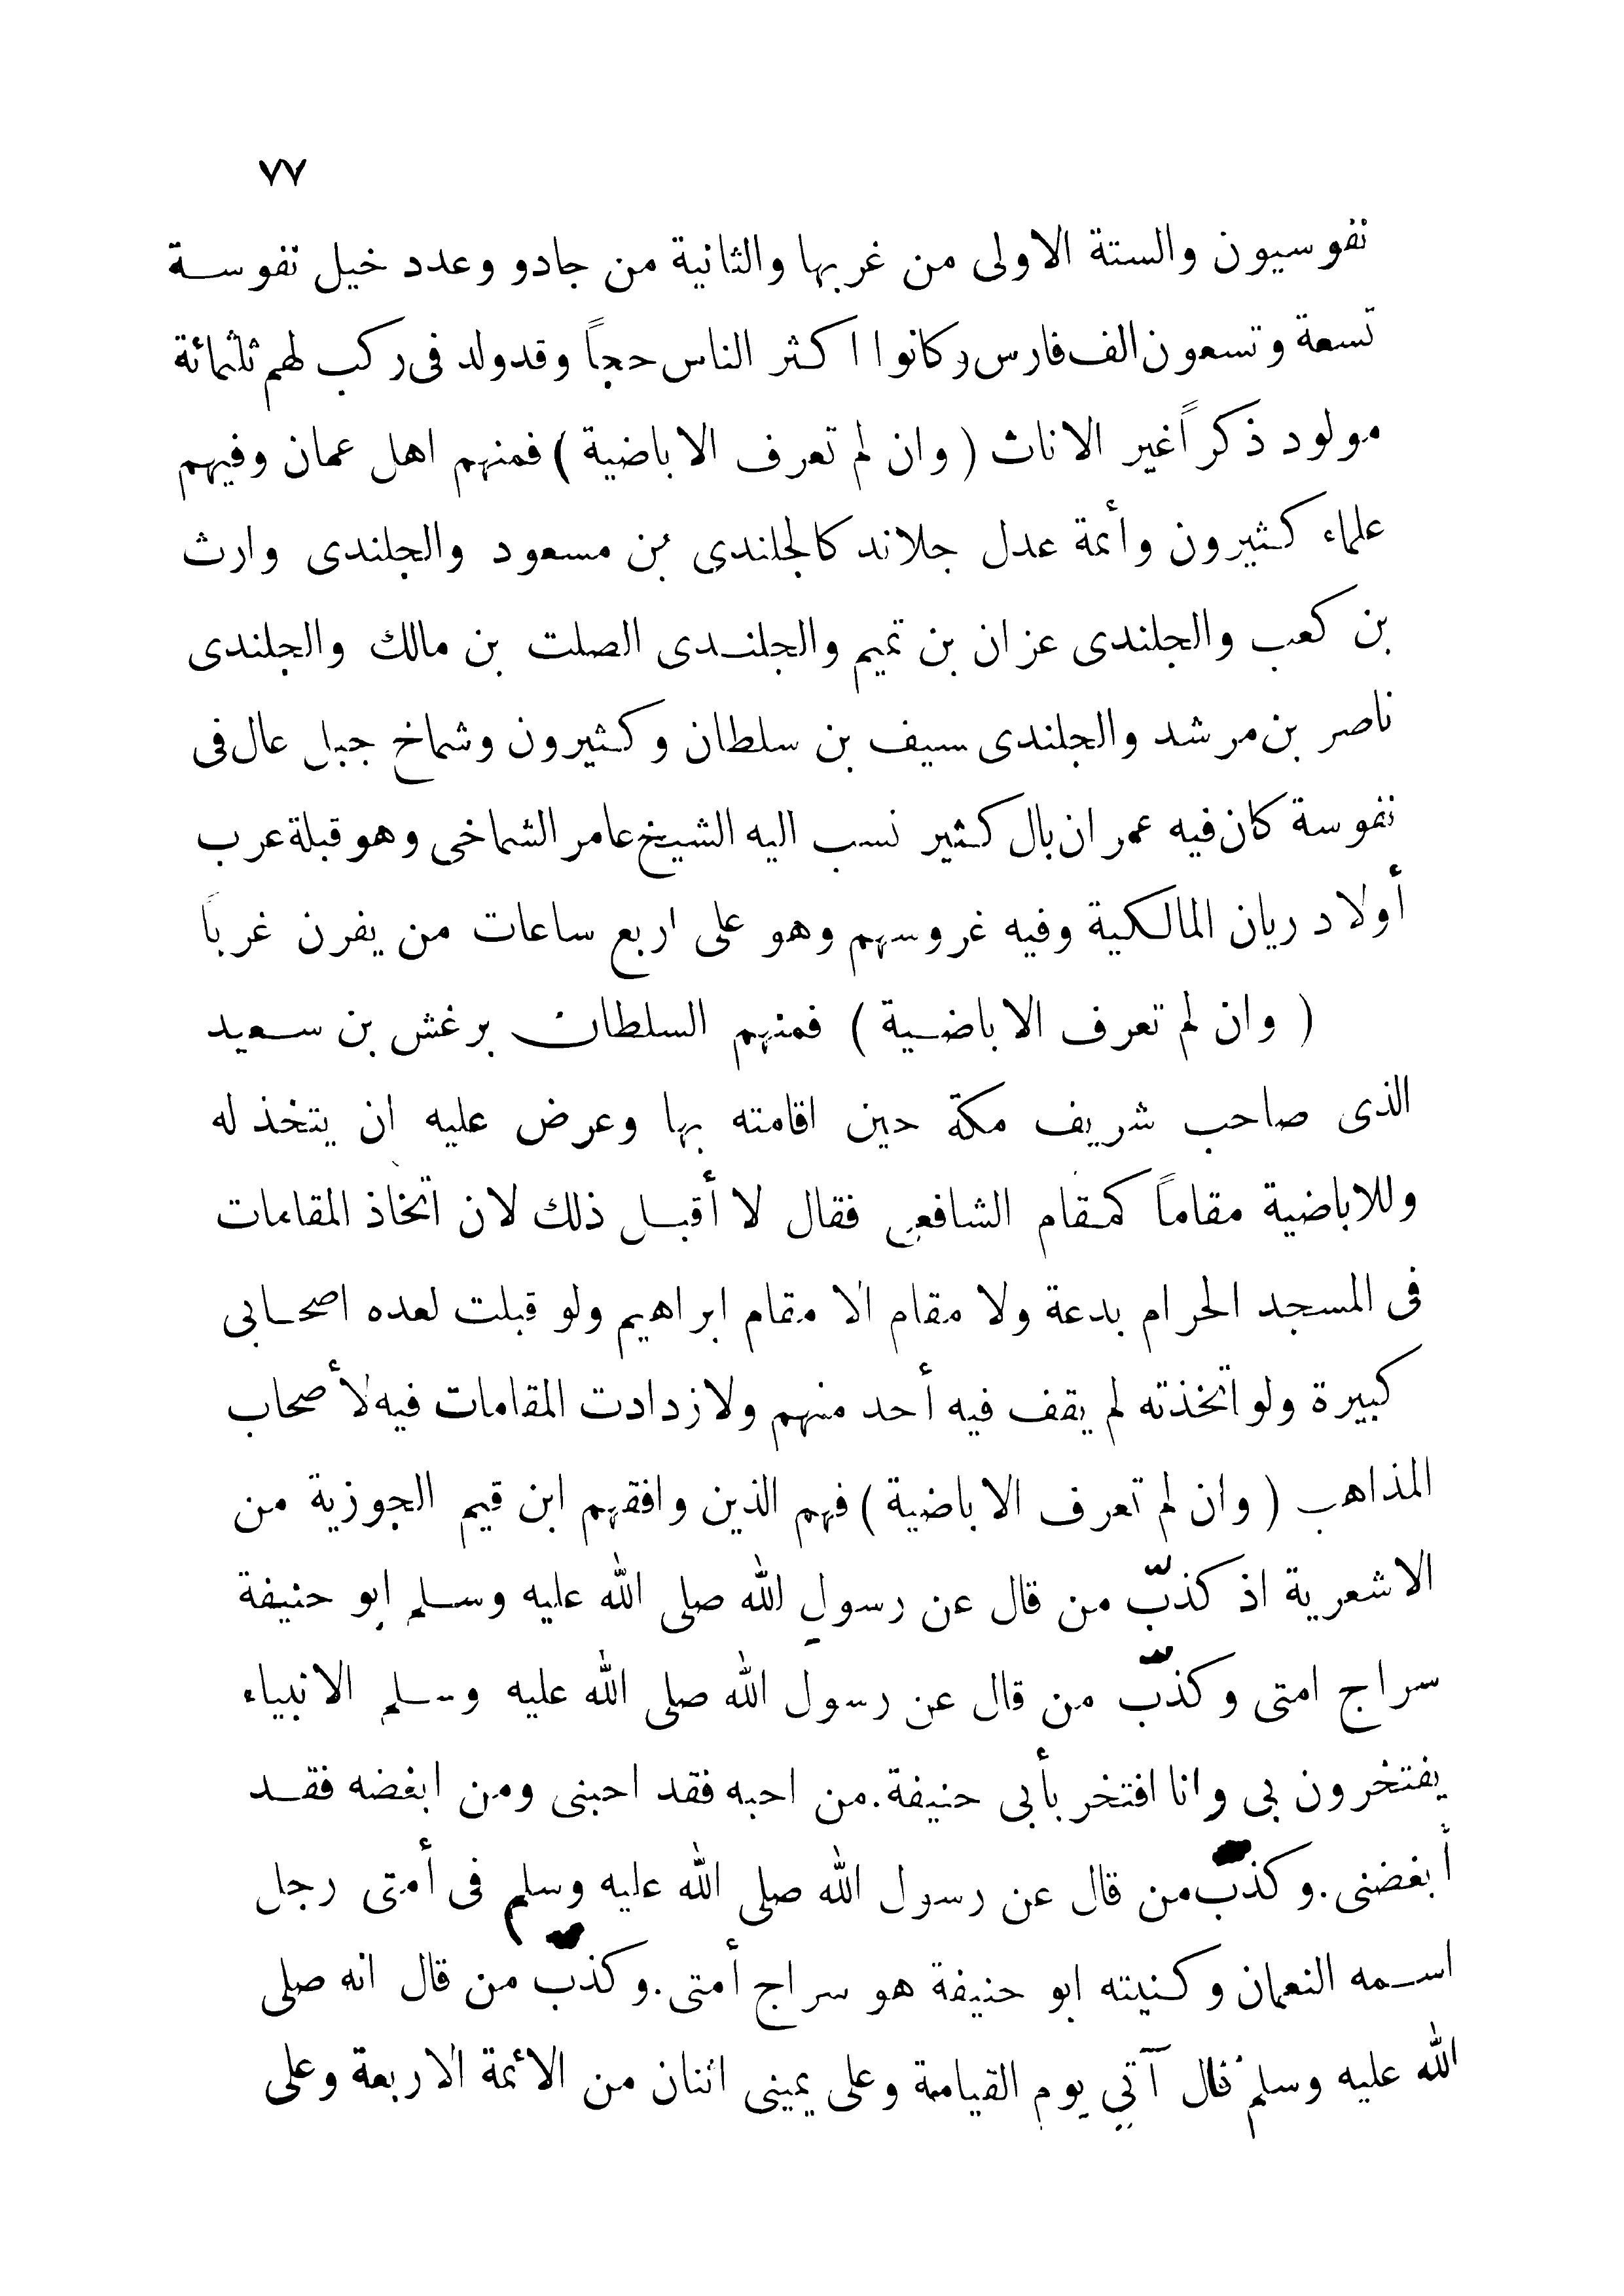 ٧٧
نفوسيون والستة الاولى من غربها والثانية من جادو وعدد خيل نفوسة
تسعة وتسعون الف فارس وكانوا اكثر الناس حجاً وقد ولد فى ركب لهم ثلثمائة
مولود ذكراً غير الاناث ( وان لم تعرف الاباضية ) فمنهم اهل عمان وفيهم
علماء كثيرون وأئمة عدل جلاند كالجلندى بن مسعود والجلندى وارث
بن كعب والجلندى عزان بن تميم والجلندى الصلت بن مالك والجلندى
ناصر بن مرشد والجلندى سيف بن سلطان وكثيرون وشماخ جبل عال فى
نفوسة كان فيه عمران بال كثير نسب اليه الشيخ عامر الشماخى وهو قبلة عرب
أولاد ريان المالكية وفيه غروسهم وهو على اربع ساعات من يفرن غرباً
( وان لم تعرف الاباضية ) فمنهم السلطان برغش بن سعيد
الذى صاحب شريف مكة حين اقامته بها وعرض عليه ان يتخذ له
وللاباضية مقاماً كمقام الشافعى فقال لا أقبل ذلك لان اتخاذ المقامات
فى المسجد الحرام بدعة ولا مقام الا مقام ابراهيم ولو قبلت لعده اصحابى
كبيرة ولو اتخذته لم يقف فيه أحد منهم ولازدادت المقامات فيه لأصحاب
المذاهب ( وان لم تعرف الاباضية ) فهم الذين وافقهم ابن قيم الجوزية من
الاشعرية اذ كذّب من قال عن رسول الله صلى الله عليه وسلم ابو حنيفة
سراج امتى وكذّب من قال عن رسول الله صلى الله عليه وسلم الانبياء
يفتخرون بى وانا افتخر بأبى حنيفة. من احبه فقد احبنى ومن ابغضه فقد
أبغضنى. وكذب من قال عن رسول الله صلى الله عليه وسلم فى أمتى رجل
اسمه النعمان وكنيته ابو حنيفة هو سراج أمتى. وكذّب من قال انه صلى
الله عليه وسلم قال آتي يوم القيامة وعلى يمينى اثنان من الائمة الاربعة وعلى